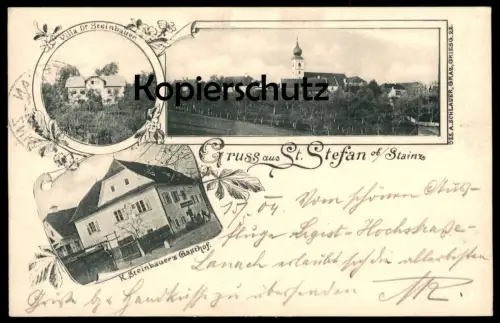 Villa Dr Steinbauer
Kopierschutz
Gruss aus St. Stefan ob Stainz
K. Steinbauer's Gasthof.
GES. A. SCHLAUER, GRAZ, GRIESG. 25.
15/ 04. Vom schönen Aus-
fluge Ligist-Hochstraße-
Lanach erlaubt sich die allerbesten
zu übersenden